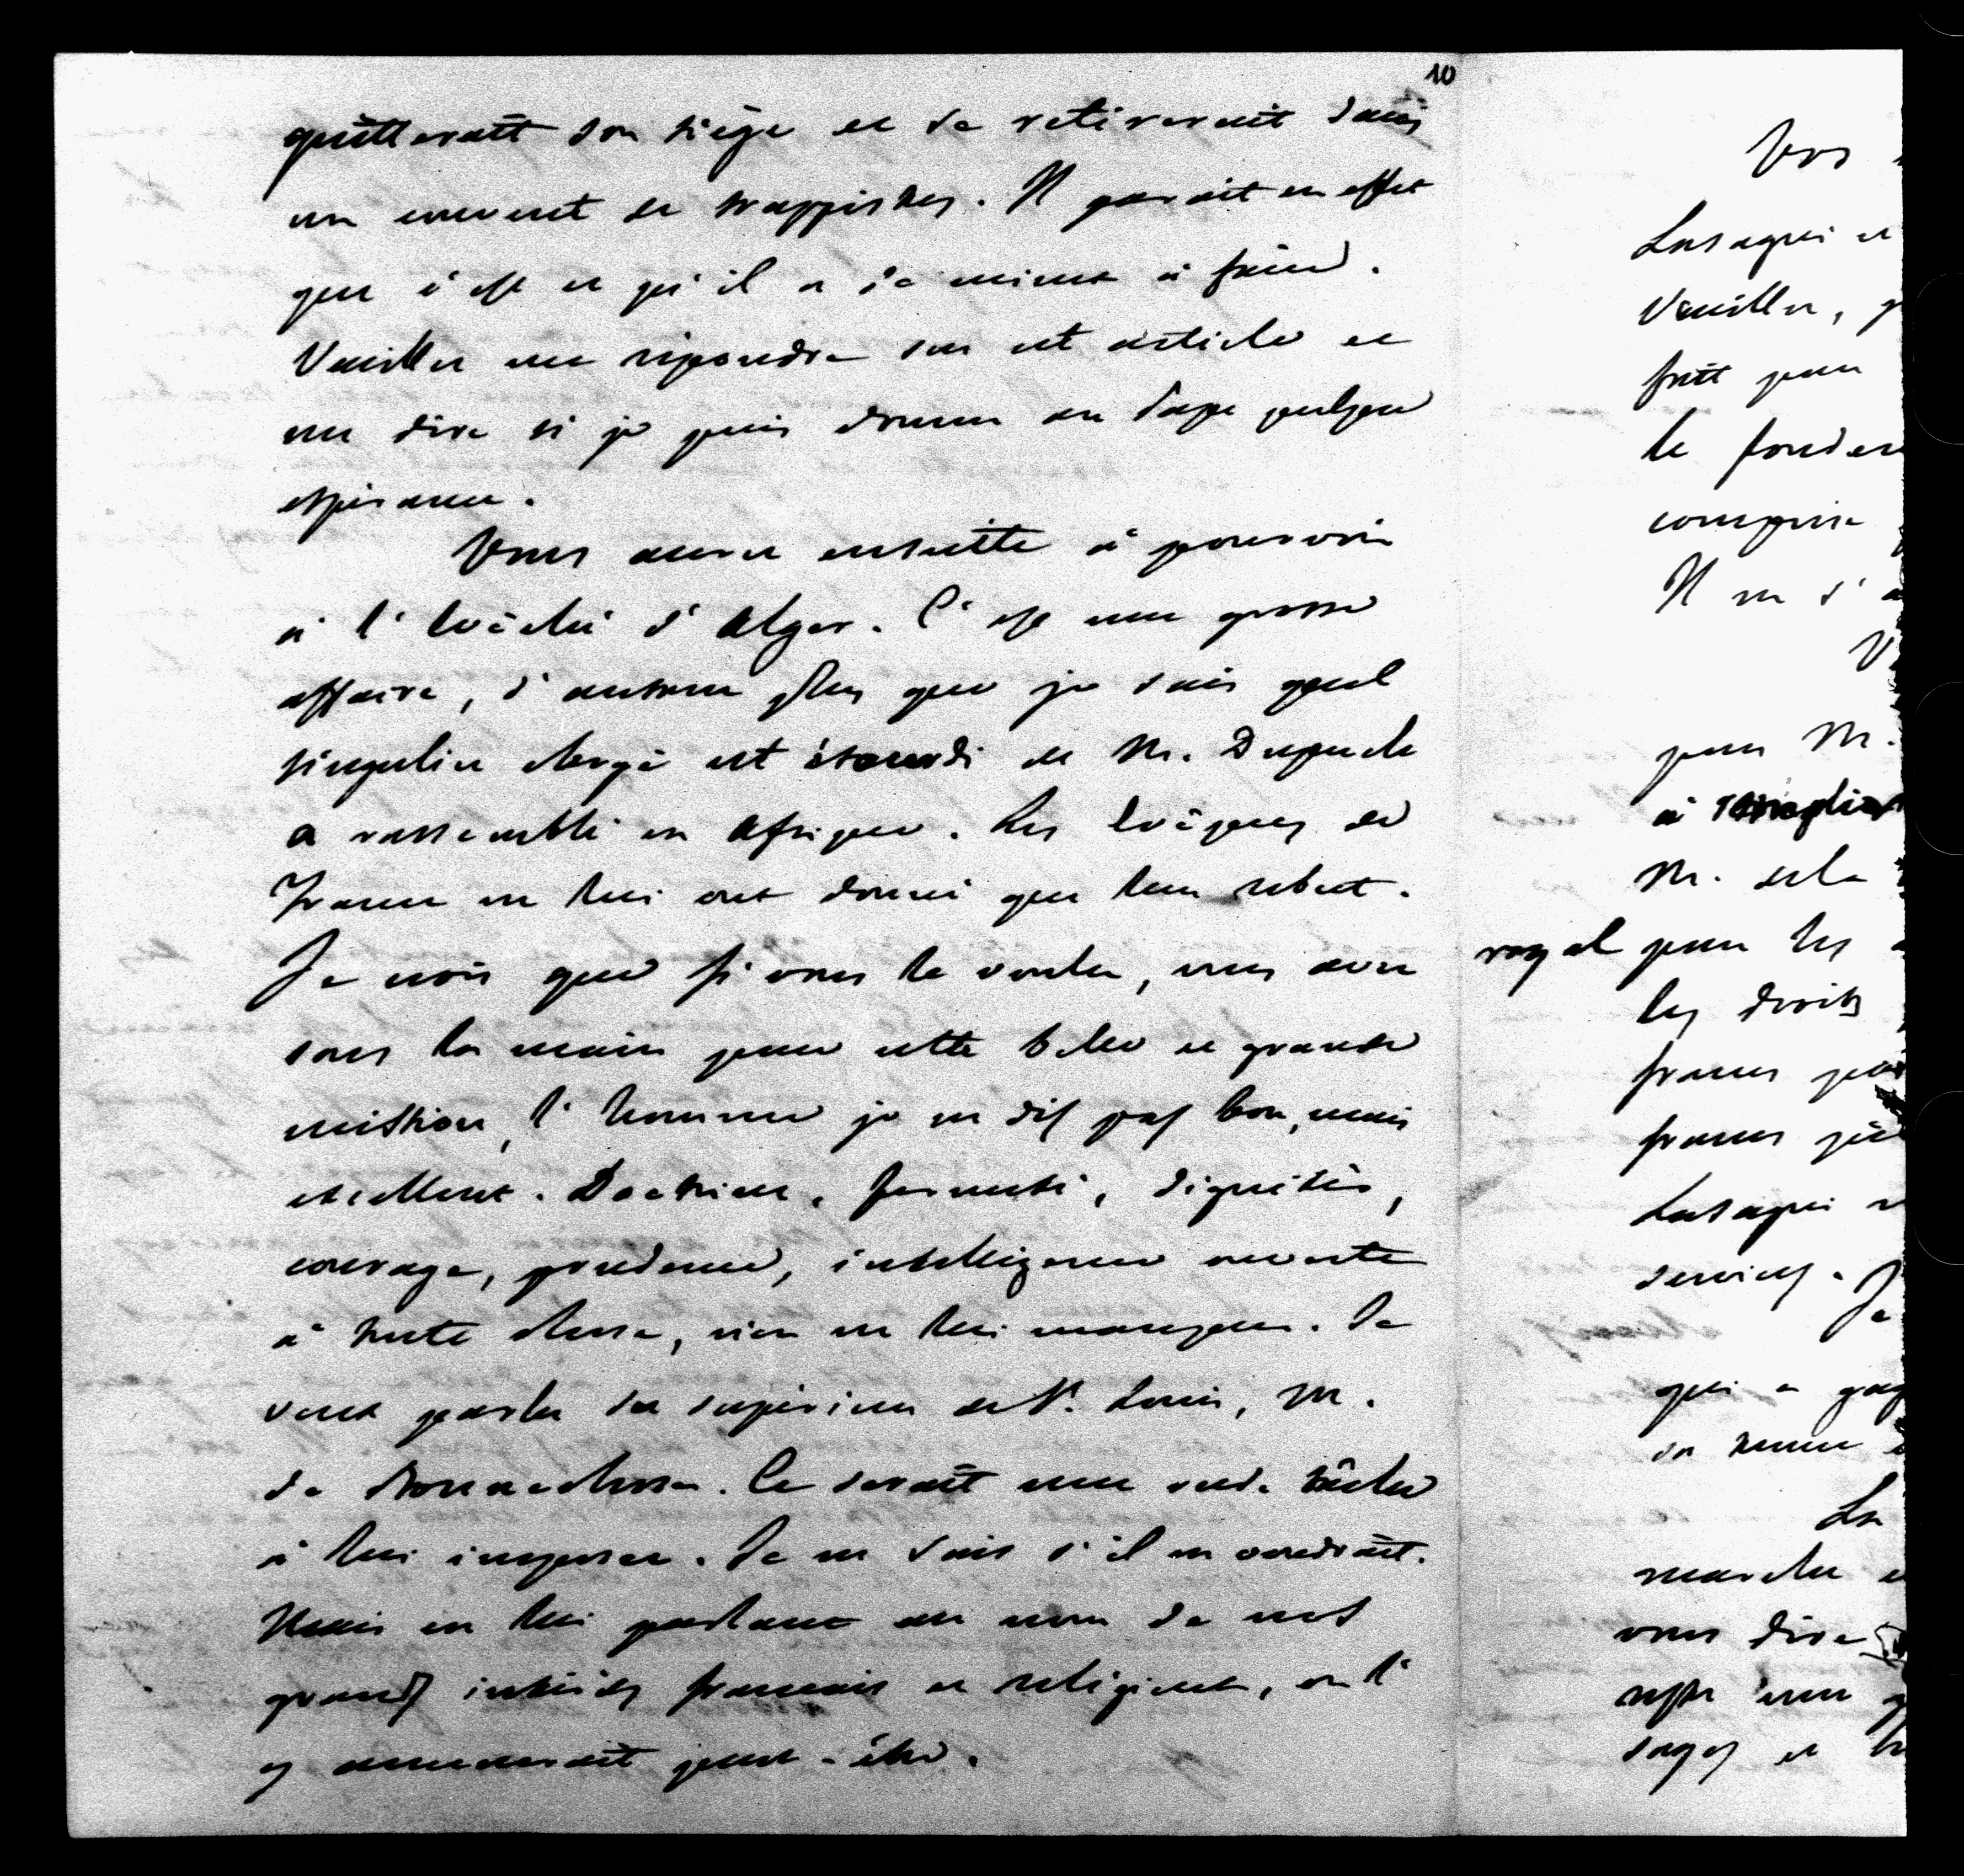 10
quitterait son siége et se retirerait dans
un couvent de trappistes. Il parait en effet
que c'est ce qu'il a de mieux à faire.
Veuillez me répondre sur cet article et
me dire si je puis donner au Pape quelque
espérance.
Vous aurez ensuite à pourvoir
à l'Evêché d'Alger. C'est une grosse
affaire, d'autant plus que je sais quel
singulier clergé cet étourdi de M. Dupuch
a rassemblé en Afrique. Les Evêques de
France ne lui ont donné que leur rebut.
Je crois que si vous le voulez, vous avez
sous la main pour cette belle et grande
mission, l'homme je ne dis pas bon, mais
excellent. Doctrine, fermeté, dignité,
courage, prudence, intelligence ouverte
à toute chose, rien ne lui manque. Je
veux parler du supérieur de St. Louis, M.
de Bonnechose. Ce serait une rude tâche
à lui imposer. Je ne sais s'il en voudrait.
Mais en lui parlant au nom de nos
grands intérêts français et religieux, on l'
y amenerait peut-être.
Vos
Lasagni et
Veuillez,
fait pour
le
Il ne s'
pour M.
à
M. de la
royal pour les
les droits
francs
francs
Lasagni
services. Je
qui a
La
marche
vous dire
reste une
sages et